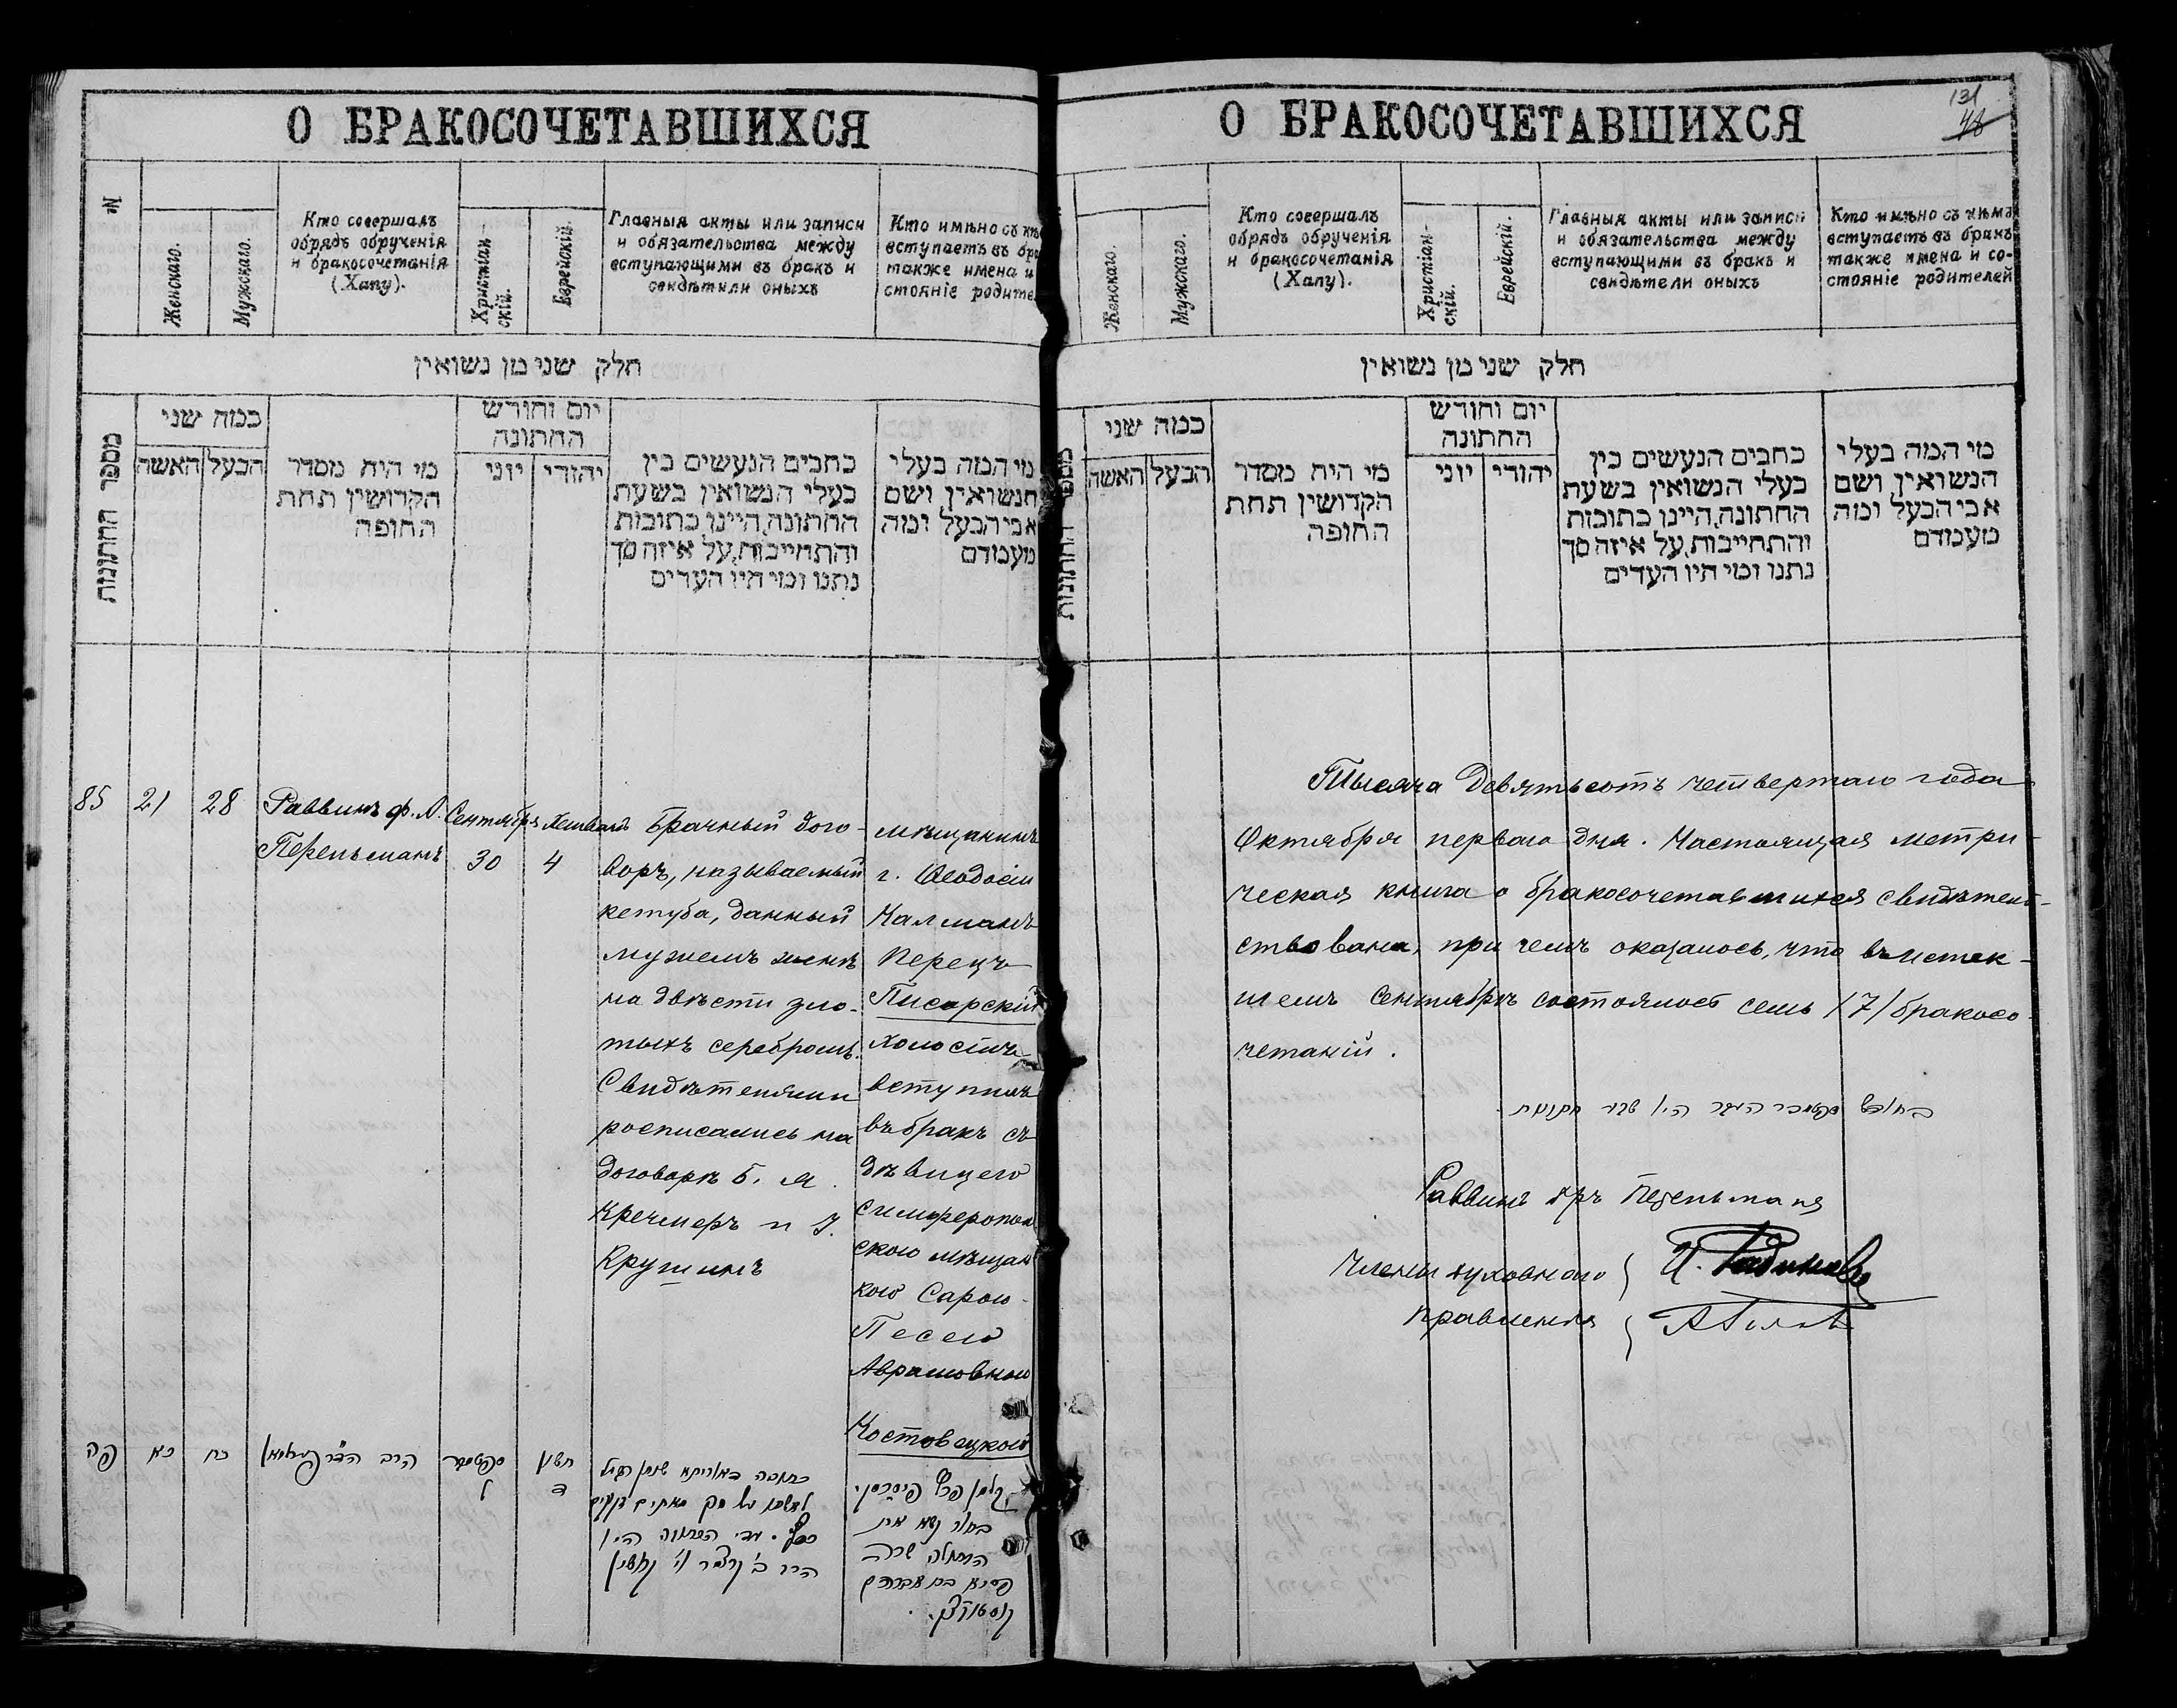 О БРАКОСОЧЕТАВШИХСЯ
№
Женскаго.
Мужскаго.
Кто совершалъ
обрядъ обрученія
и бракосочетанія
(Хапу).
Христіан-
скій.
Еврейскій.
Главныя акты или записи
и обязательства между
вступающими въ бракъ и
свидѣтили оныхъ
Кто имѣно съ
вступаетъ въ
также имена и
стояніе
חלק שני מן נשואין
מספר החתונות
כמה שני
האשה
הבעל
מי הית מסדר
הקדושין תחת
החופה
יום וחודש
החתונה
יוני
יהודי
כתבים הנעשים בין
בעלי הנשואין בשעת
החתונה,היינו כתובות
והתחייבות,על איזה סך
נתנו ומי היו העדים
מי המה בעלי
הנשואין ושם
אבי הבעל ומה
מעמדם
85
21
28
Раввинъ ф. А.
Перельманъ
Сентябрь
30
Хешванъ
4
Брачный дого-
воръ, называемый
кетуба, данный
мужемъ женѣ
на двѣсти зло-
тыхъ серебромъ.
Свидѣтелями
росписались на
договорѣ Б. М.
Кречмеръ и І.
Крушинъ
мѣщанинъ
г. Ѳеодосіи
Калманъ
Перецъ
Писарскій
холостой
вступилъ
въ бракъ съ
дѣвицею
симферополь
скою мѣщан
кою Сарою-
Песею
Аврамовною
Костовецкой
פה
כא
כח
הרב הד״ר פערלמאן
סעפטעמבר
ל
חשון
ד
כתובה דאורייתא שנתן הבעל
לאשתו על סך מאתים זקוקים
כסף. עדי הכתובה היו
קלמן פרץ פיסרסקי.
בחור נשא את
הבתולה שרה
פסיא בת אברהם
О БРАКОСОЧЕТАВШИХСЯ
131
48
Женскаго.
Мужскаго.
Кто совершалъ
обрядъ обрученія
и бракосочетанія
(Хапу).
Христіан-
скій.
Еврейскій.
Главныя акты или записи
и обязательства между
вступающими въ бракъ и
свидѣтели оныхъ
Кто имѣно съ кѣмъ
вступаетъ въ бракъ
также имена и со-
стояніе родителей
חלק שני מן נשואין
כמה שני
האשה
הבעל
מי הית מסדר
הקדושין תחת
החופה
יום וחודש
החתונה
יוני
יהודי
כתבים הנעשים בין
בעלי הנשואין בשעת
החתונה,היינו כתובות
והתחייבות,על איזה סך
נתנו ומי היו העדים
מי המה בעלי
הנשואין ושם
אבי הבעל ומה
מעמדם
Тысяча Девятьсотъ четвертаго года
Октября перваго дня. Настоящая метри-
ческая книга о бракосочетавшихся свидѣтель-
ствована, при чемъ оказалось, что въ истек-
шемъ Сентябрѣ состоялось семь /7/ бракосо-
четаній.
Раввинъ д-ръ Перельманъ
Члены духовнаго
правленія